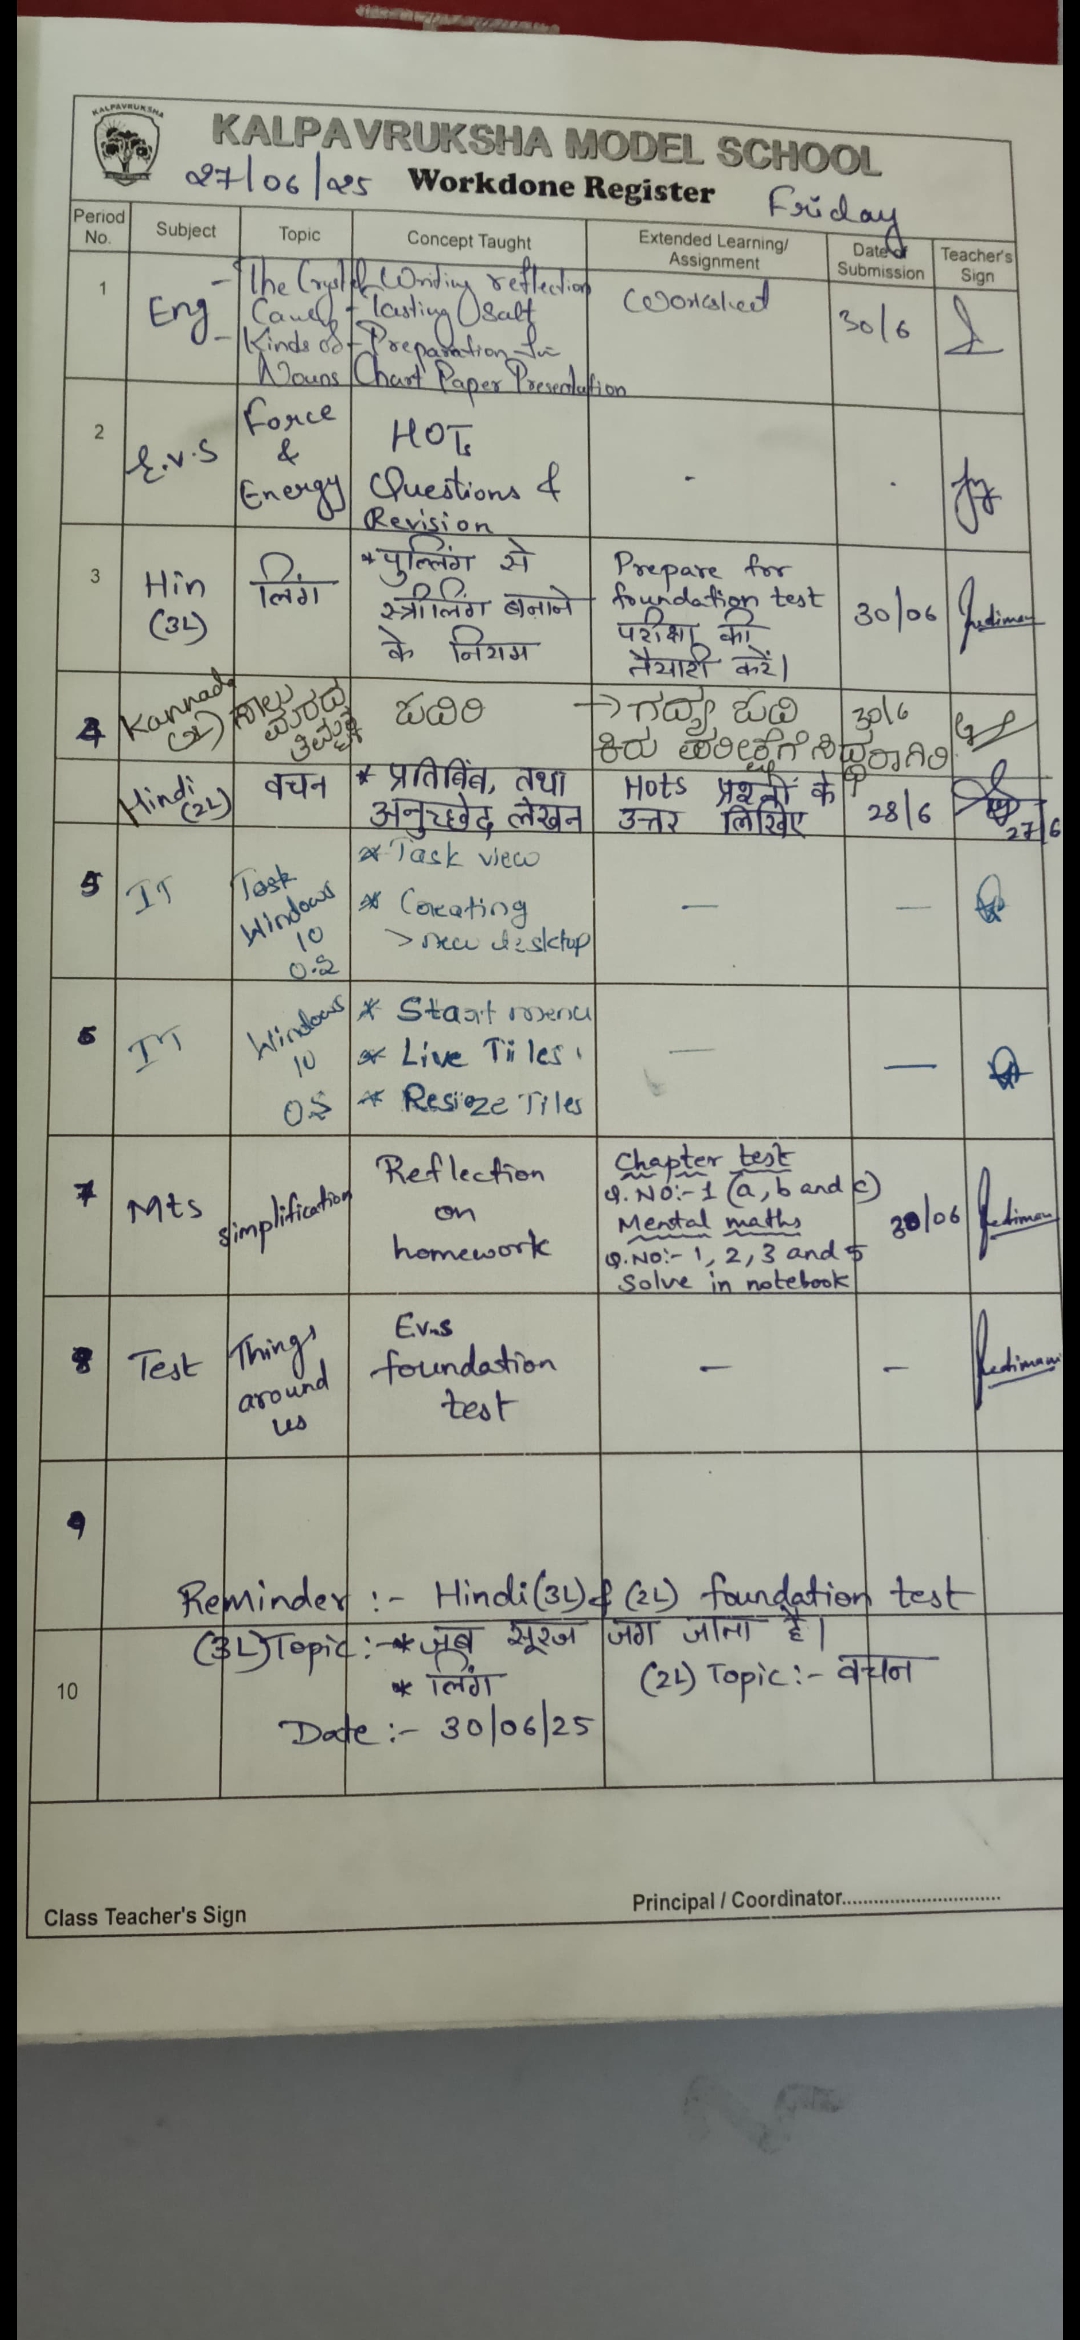 KALPAVRUKSHA
KALPAVRUKSHA MODEL SCHOOL
27/06/25 Workdone Register Friday
Period No. Subject Topic Concept Taught Extended Learning/ Assignment Date of Submission Teacher's Sign
1 Eng - The Crystal Cave - Writing reflection Worksheet 30/6
- Tasting Salt
- Kinds of Nouns - Preparation for
Chart Paper Presentation
2 E.V.S Force & Energy HOTs - .
Questions &
Revision
3 Hin (3L) लिंग * पुल्लिंग से Prepare for 30/06
स्त्रीलिंग बनाने foundation test
के नियम परीक्षा की
तैयारी करें।
4 Kannada ಸಾಲು ಮರದ ತಿಮ್ಮಕ್ಕ → ಗದ್ಯ 30/6
ಕಿರು ಪರೀಕ್ಷೆಗೆ ಸಿದ್ಧರಾಗಿರಿ
Hindi (2L) वचन * प्रतिबिंब, तथा Hots प्रश्नों के 28/6
अनुच्छेद लेखन उत्तर लिखिए 27/6
5 IT Task Windows 10 * Task view — —
* Creating
> new desktop
6 IT Windows 10 * Start menu — —
* Live Tiles
* Resize Tiles
7 Mts simplification Reflection Chapter test 30/06
on Q.NO:- 1 (a, b and c)
homework Mental maths
Q.NO:- 1, 2, 3 and 5
Solve in notebook
8 Test Things around us E.V.S — —
foundation
test
9
Reminder :- Hindi (3L) & (2L) foundation test
(3L) Topic :- * जब सूरज जग जाता है।
10 * लिंग (2L) Topic :- वचन
Date :- 30/06/25
Class Teacher's Sign Principal / Coordinator..............................